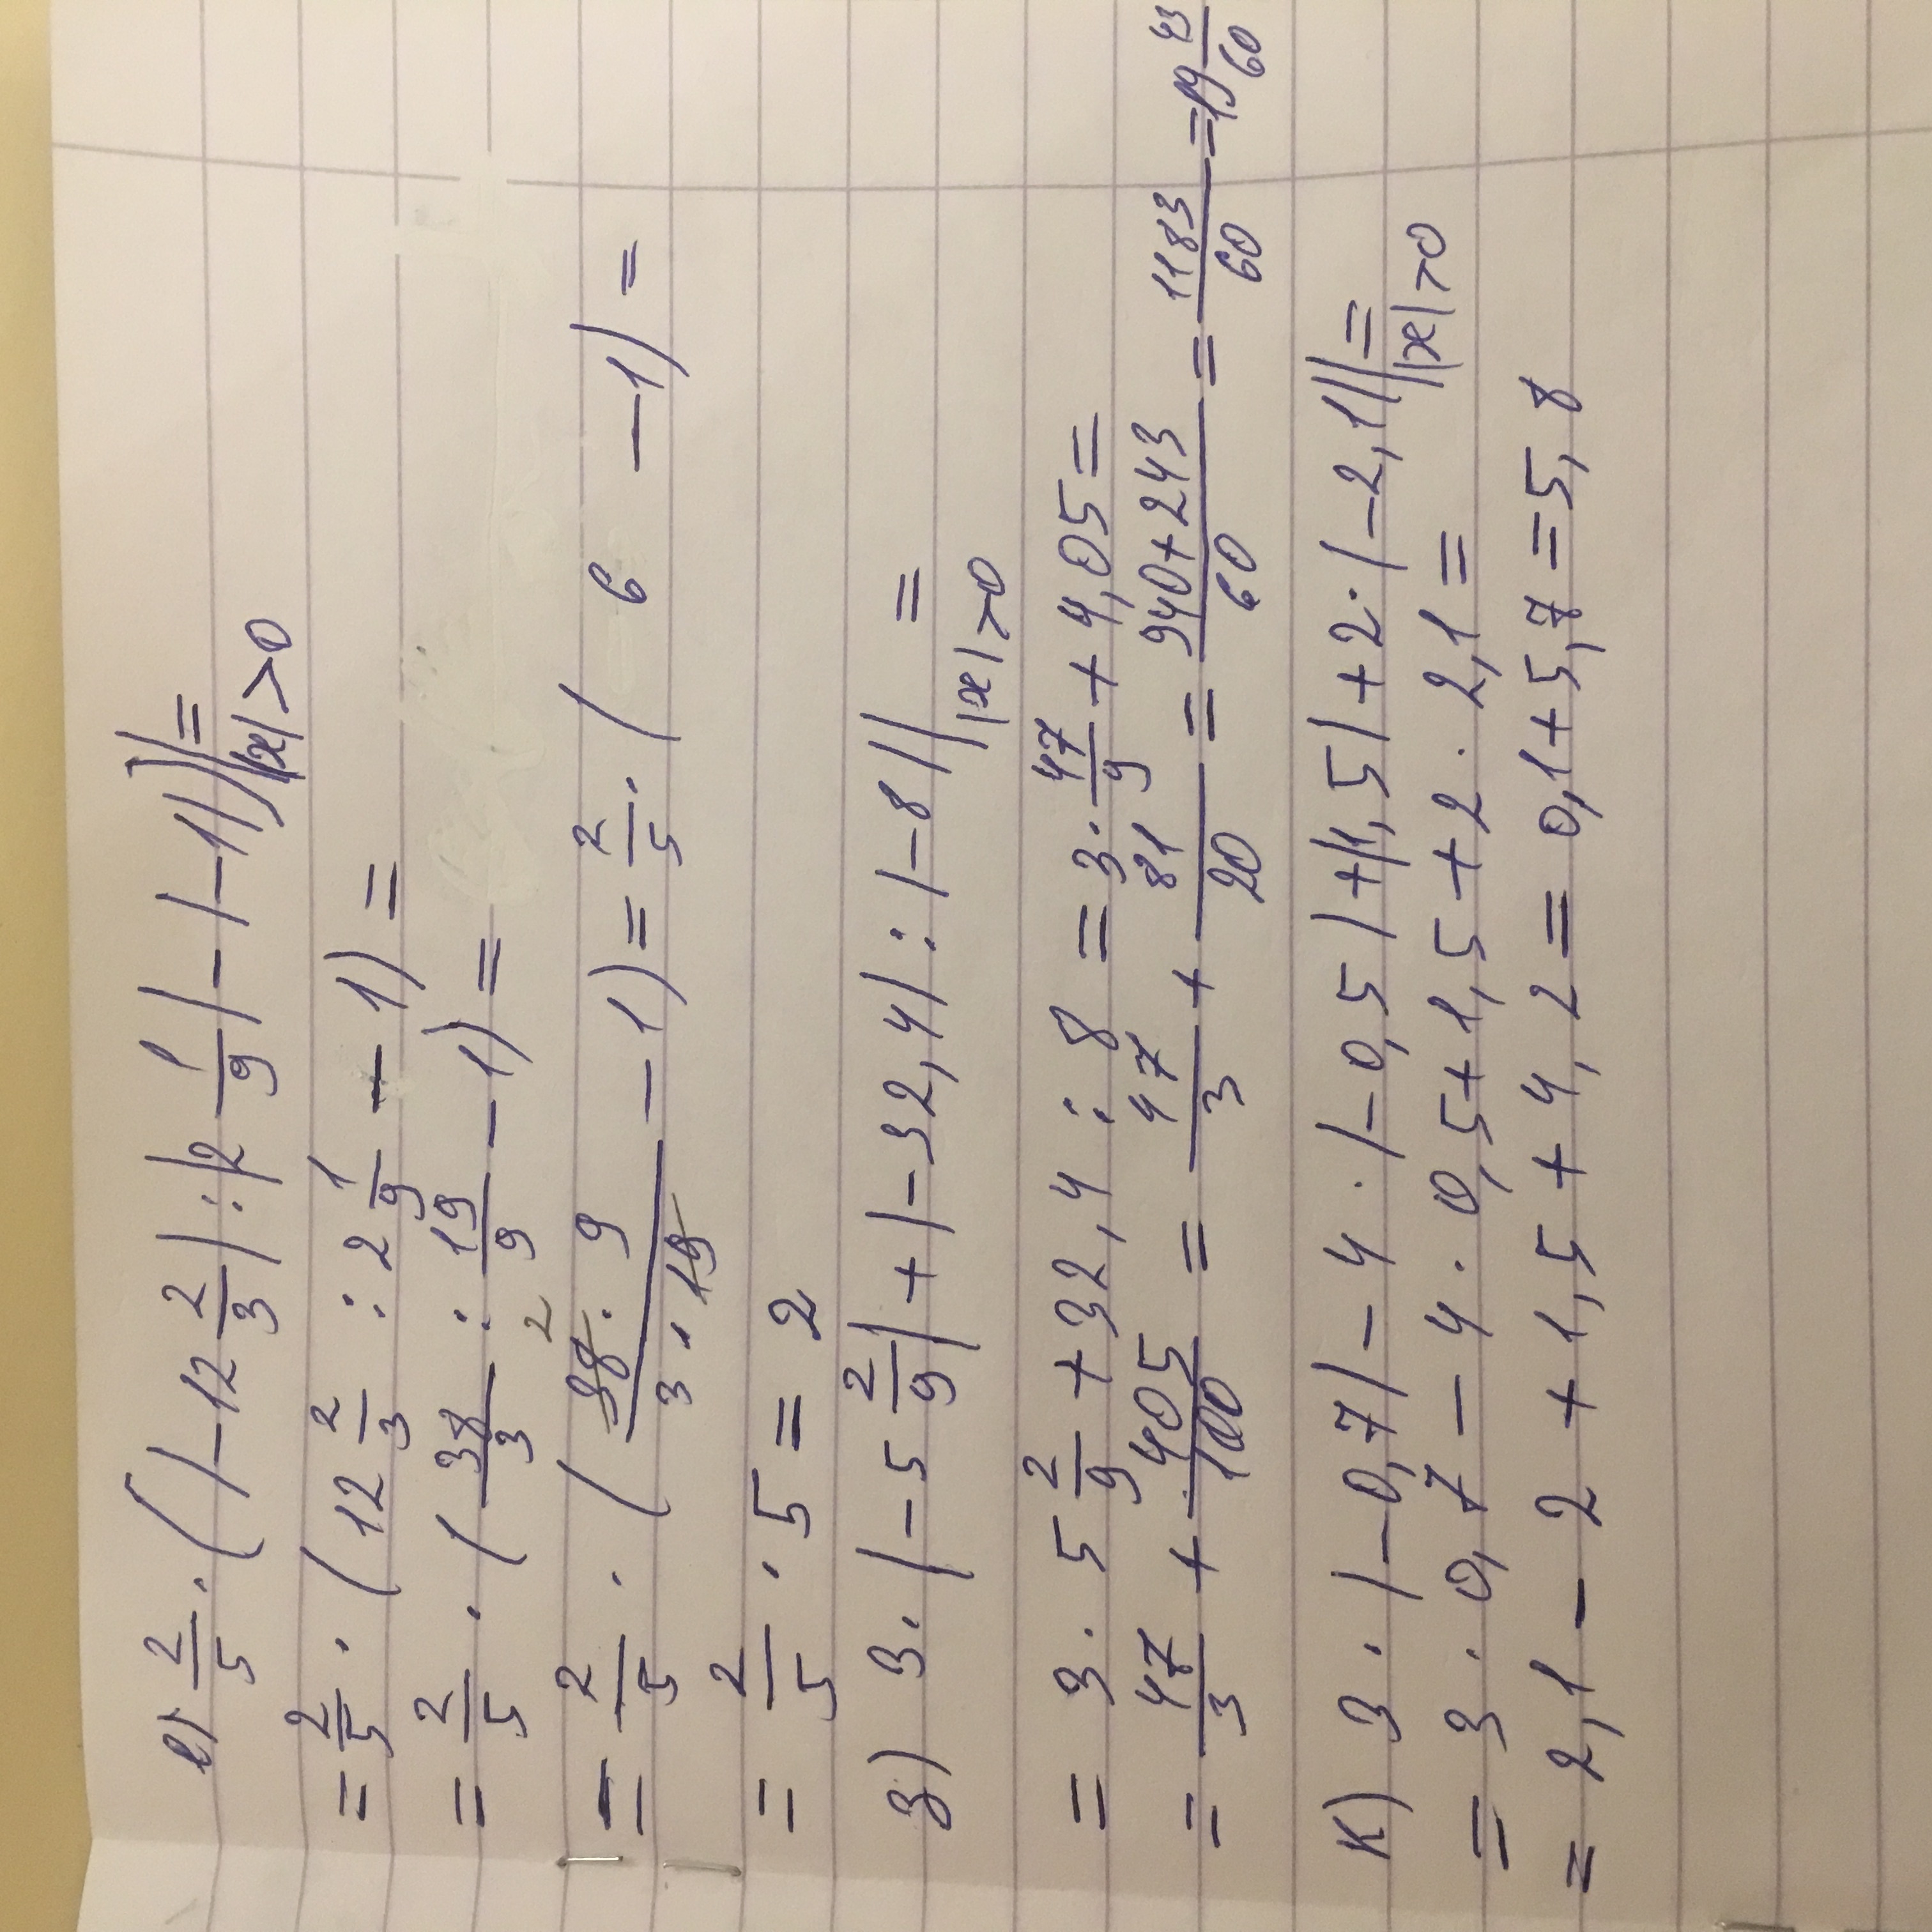 е) 2/5 · (|-12 2/3| : |2 1/9| - |-1|) =
|x| > 0
= 2/5 · (12 2/3 : 2 1/9 - 1) =
= 2/5 · (38/3 : 19/9 - 1) =
= 2/5 · (38 · 9 / 3 · 19 - 1) = 2/5 · (6 - 1) =
2
= 2/5 · 5 = 2
з) 3 · |-5 2/9| + |-32,4| : |-8| =
|x| > 0
= 3 · 5 2/9 + 32,4 : 8 = 3 · 47/9 + 4,05 =
= 47/3 + 405/100 = 47/3 + 81/20 = 940+243/60 = 1183/60 = 19 43/60
к) 3 · |-0,7| - 4 · |-0,5| + |1,5| + 2 · |-2,1| =
|x| > 0
= 3 · 0,7 - 4 · 0,5 + 1,5 + 2 · 2,1 =
= 2,1 - 2 + 1,5 + 4,2 = 0,1 + 5,7 = 5,8